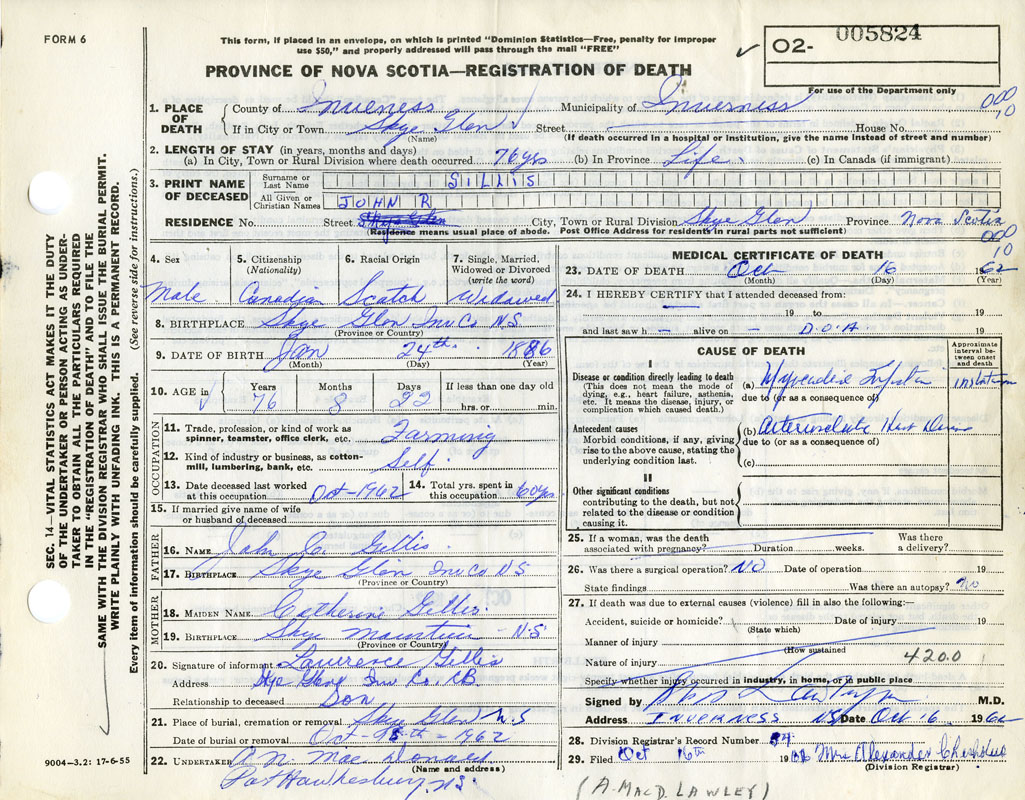 FORM 6
This form, if placed in an envelope, on which is printed "Dominion Statistics—Free, penalty for improper
use $50," and properly addressed will pass through the mail "FREE"
02- 005824
For use of the Department only
PROVINCE OF NOVA SCOTIA—REGISTRATION OF DEATH
SEC. 14—VITAL STATISTICS ACT MAKES IT THE DUTY
OF THE UNDERTAKER OR PERSON ACTING AS UNDER-
TAKER TO OBTAIN ALL THE PARTICULARS REQUIRED
IN THE "REGISTRATION OF DEATH" AND TO FILE THE
SAME WITH THE DIVISION REGISTRAR WHO SHALL ISSUE THE BURIAL PERMIT.
WRITE PLAINLY WITH UNFADING INK. THIS IS A PERMANENT RECORD.
Every item of information should be carefully supplied. (See reverse side for instructions.)
1. PLACE OF DEATH
County of Inverness Municipality of Inverness
If in City or Town Skye Glen Street House No.
(Name) (If death occurred in a hospital or institution, give the name instead of street and number)
000
10
2. LENGTH OF STAY (in years, months and days)
(a) In City, Town or Rural Division where death occurred 76 yrs (b) In Province Life (c) In Canada (if immigrant)
3. PRINT NAME OF DECEASED
Surname or Last Name GILLIS
All Given or Christian Names JOHN R
RESIDENCE No. Street Skye Glen City, Town or Rural Division Skye Glen Province Nova Scotia
(Residence means usual place of abode. Post Office Address for residents in rural parts not sufficient)
000
10
4. Sex Male
5. Citizenship (Nationality) Canadian
6. Racial Origin Scotch
7. Single, Married, Widowed or Divorced (write the word) Widowed
8. BIRTHPLACE Skye Glen Inv Co N.S
(Province or Country)
9. DATE OF BIRTH Jan 24th 1886
(Month) (Day) (Year)
10. AGE in Years 76 Months 8 Days 22 If less than one day old hrs. or min.
OCCUPATION
11. Trade, profession, or kind of work as spinner, teamster, office clerk, etc. Farming
12. Kind of industry or business, as cotton-mill, lumbering, bank, etc. Self
13. Date deceased last worked at this occupation Oct-1962
14. Total yrs. spent in this occupation 60 yrs
15. If married give name of wife or husband of deceased
FATHER
16. NAME John C. Gillis
17. BIRTHPLACE Skye Glen Inv Co N S
(Province or Country)
MOTHER
18. MAIDEN NAME Catherine Gillis
19. BIRTHPLACE Skye Mountain N.S.
(Province or Country)
20. Signature of informant Lawrence Gillis
Address Skye Glen Inv Co. CB
Relationship to deceased Son
21. Place of burial, cremation or removal Skye Glen N.S
Date of burial or removal 1962
22. UNDERTAKER
(Name and address)
Port Hawkesbury, NS
9004—3.2: 17-6-55
MEDICAL CERTIFICATE OF DEATH
23. DATE OF DEATH Oct 16 1962
(Month) (Day) (Year)
24. I HEREBY CERTIFY that I attended deceased from:
19 to 19
and last saw h — alive on — D.O.A 19
CAUSE OF DEATH
Approximate interval between onset and death
I
Disease or condition directly leading to death
(This does not mean the mode of dying, e.g., heart failure, asthenia, etc. It means the disease, injury, or complication which caused death.)
(a)
due to (or as a consequence of)
Antecedent causes
Morbid conditions, if any, giving rise to the above cause, stating the underlying condition last.
(b)
due to (or as a consequence of)
(c)
II
Other significant conditions
contributing to the death, but not related to the disease or condition causing it.
25. If a woman, was the death associated with pregnancy? Duration weeks. Was there a delivery?
26. Was there a surgical operation? NO Date of operation 19
State findings Was there an autopsy? No
27. If death was due to external causes (violence) fill in also the following:—
Accident, suicide or homicide? Date of injury 19
(State which)
Manner of injury
(How sustained
Nature of injury 420.0
Specify whether injury occurred in industry, in home, or in public place
Signed by M.D.
Address INVERNESS NS Date Oct 16 1962
28. Division Registrar's Record Number 34
29. Filed Oct 16th 1962 Mrs Alexander Chisholm
(Division Registrar)
(A. MACD. LAWLEY)